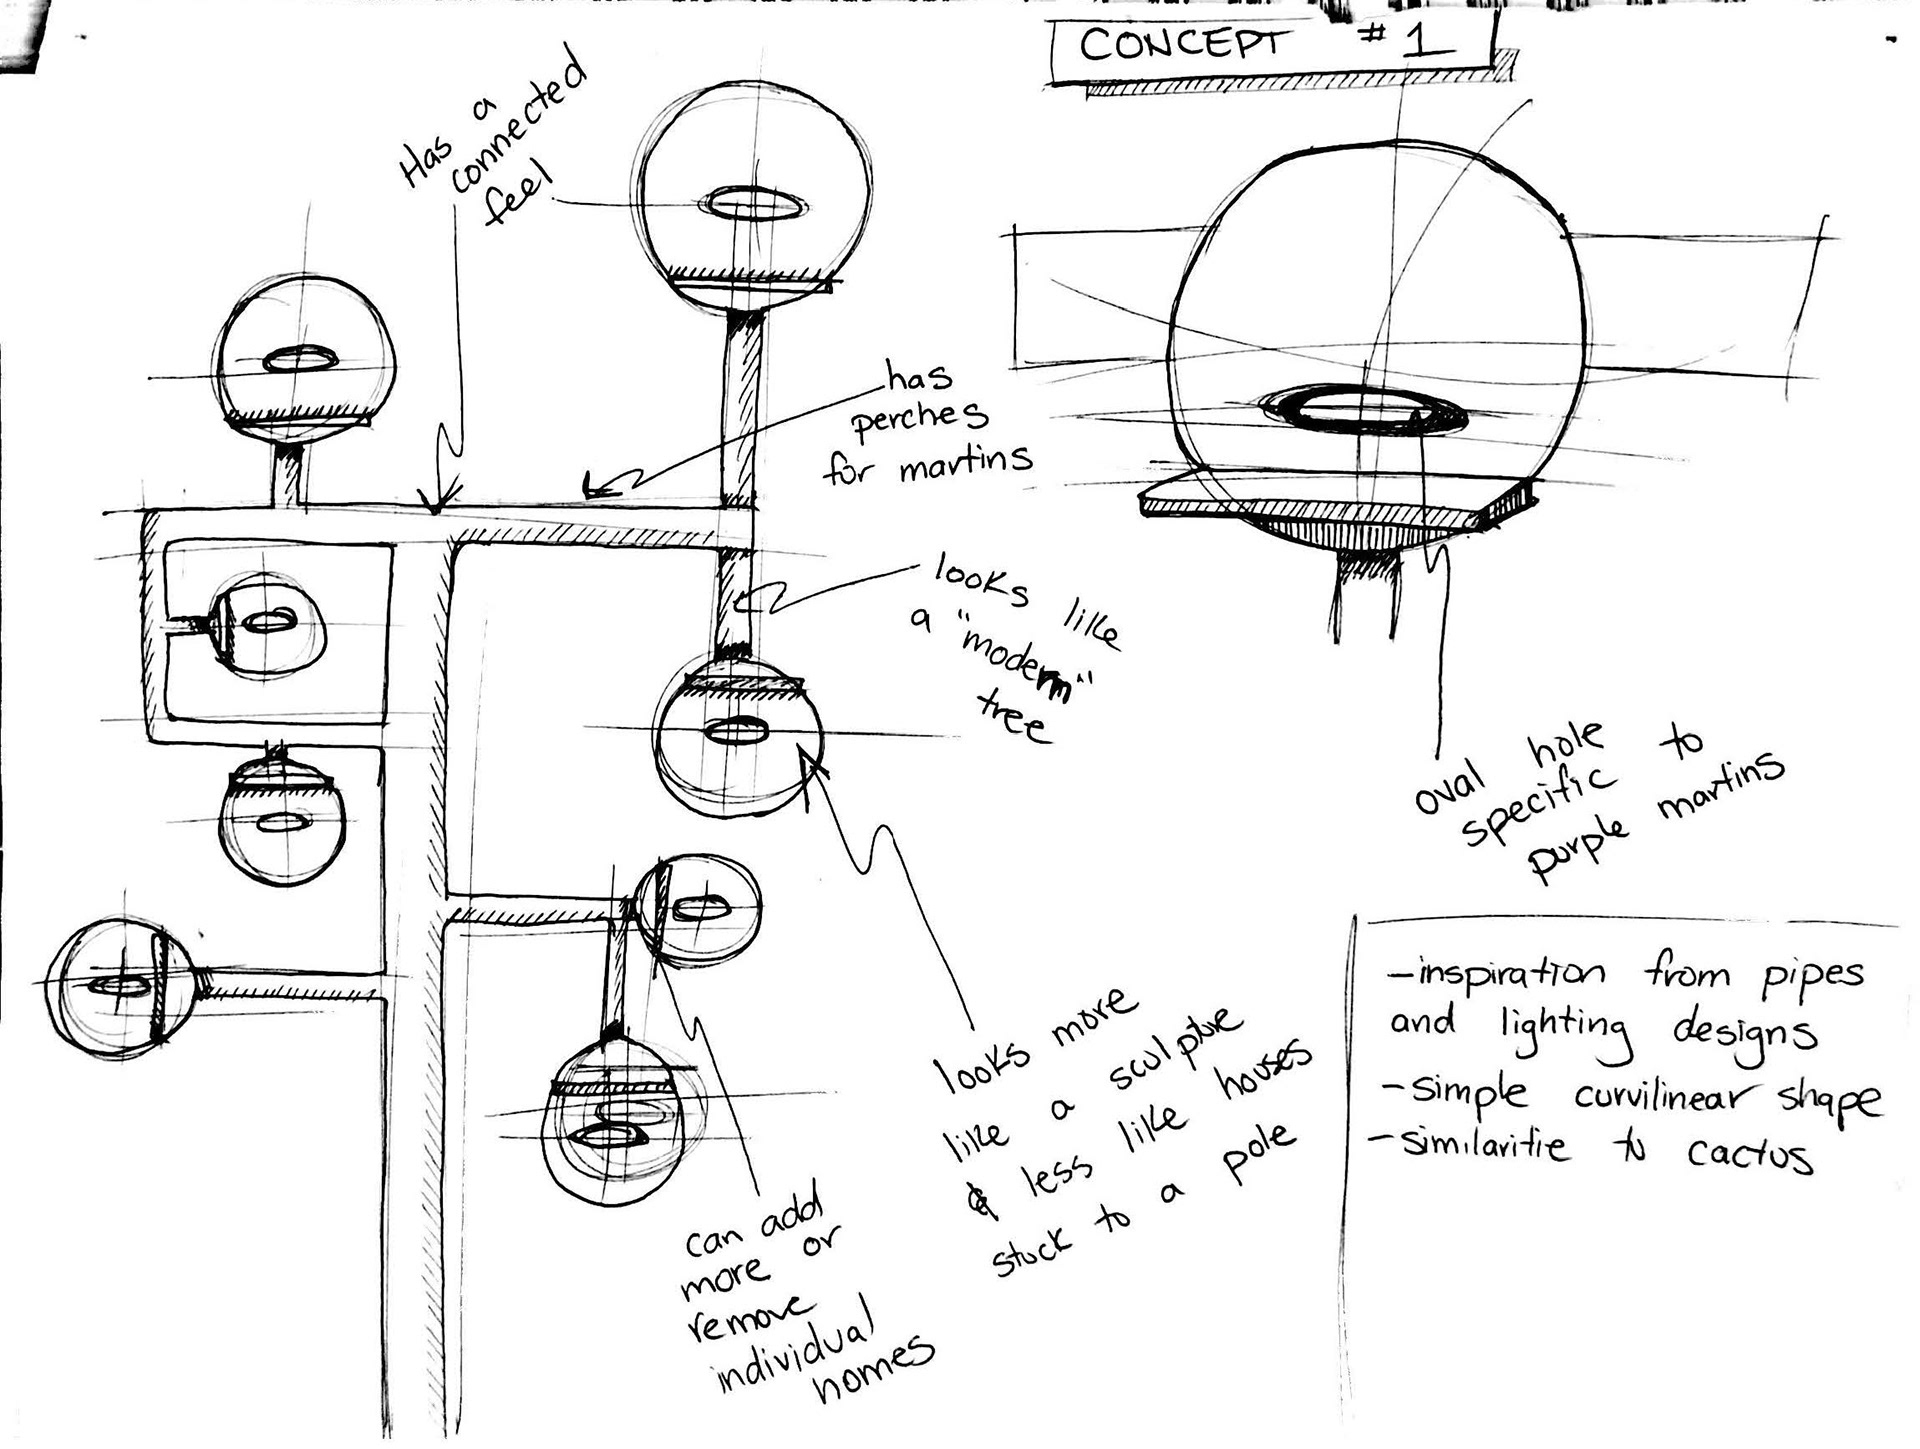 CONCEPT #1
Has a
connected
feel
has
perches
for martins
looks like
a "modern"
tree
oval hole
specific to
purple martins
looks more
like a sculpture
& less like houses
stuck to a pole
can add
more or
remove
individual
homes
-inspiration from pipes
and lighting designs
-simple curvilinear shape
-similaritie to cactus